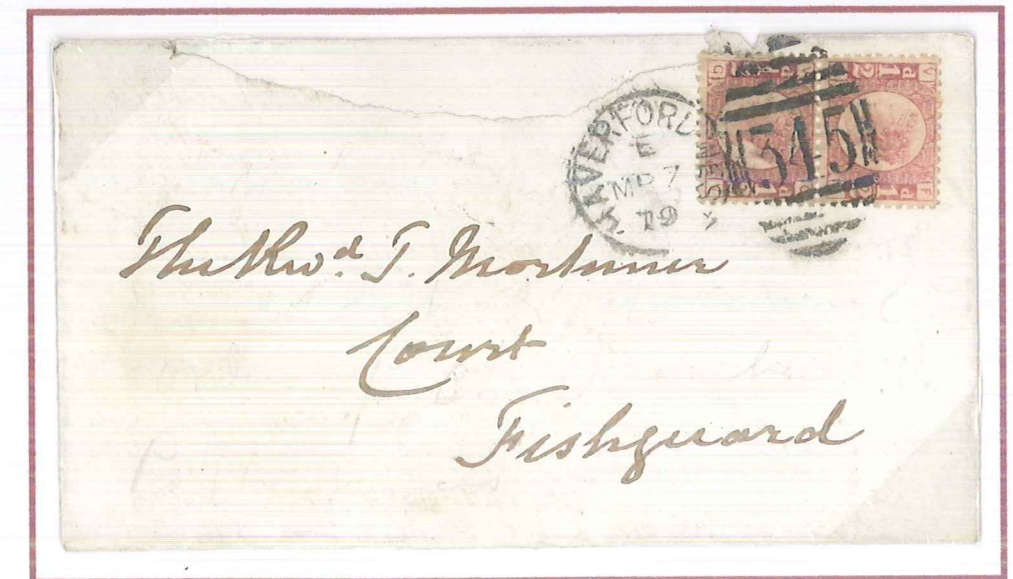 HAVERFORD WEST
E
MR 7
79
345
The Revd. T. Mortimer
Court
Fishguard